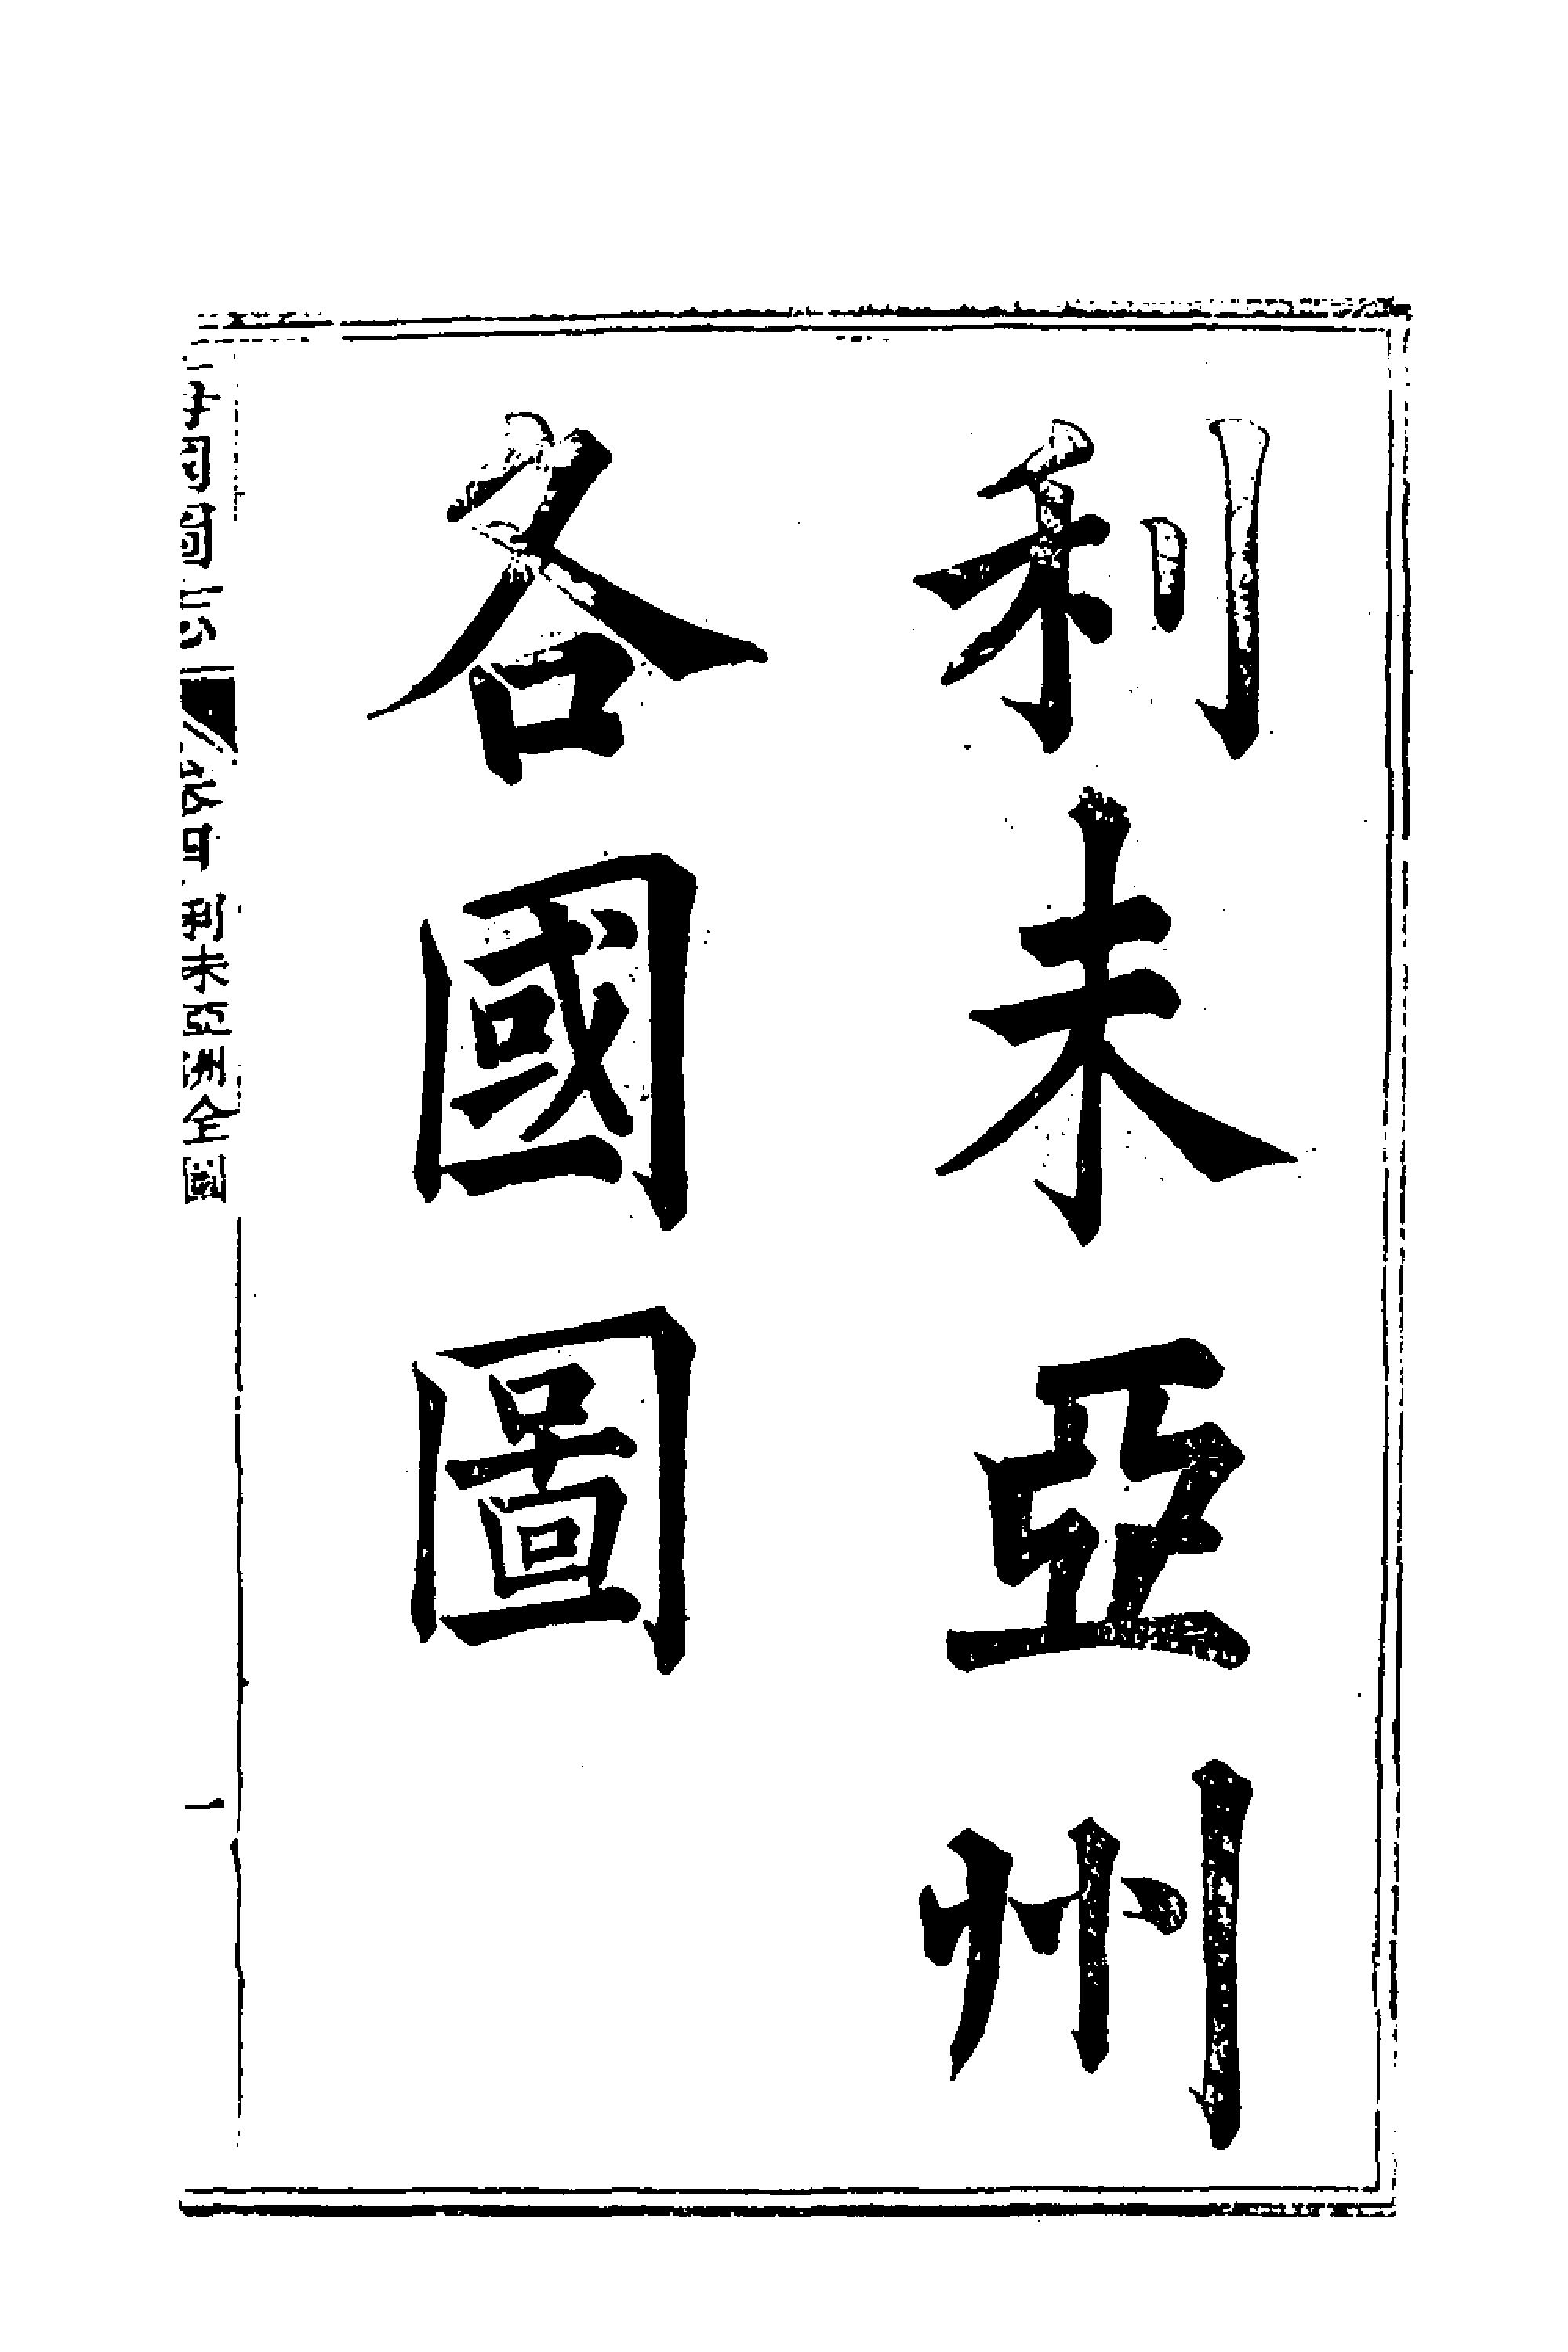 利未亞州
各國圖
利未亞洲全圖
一